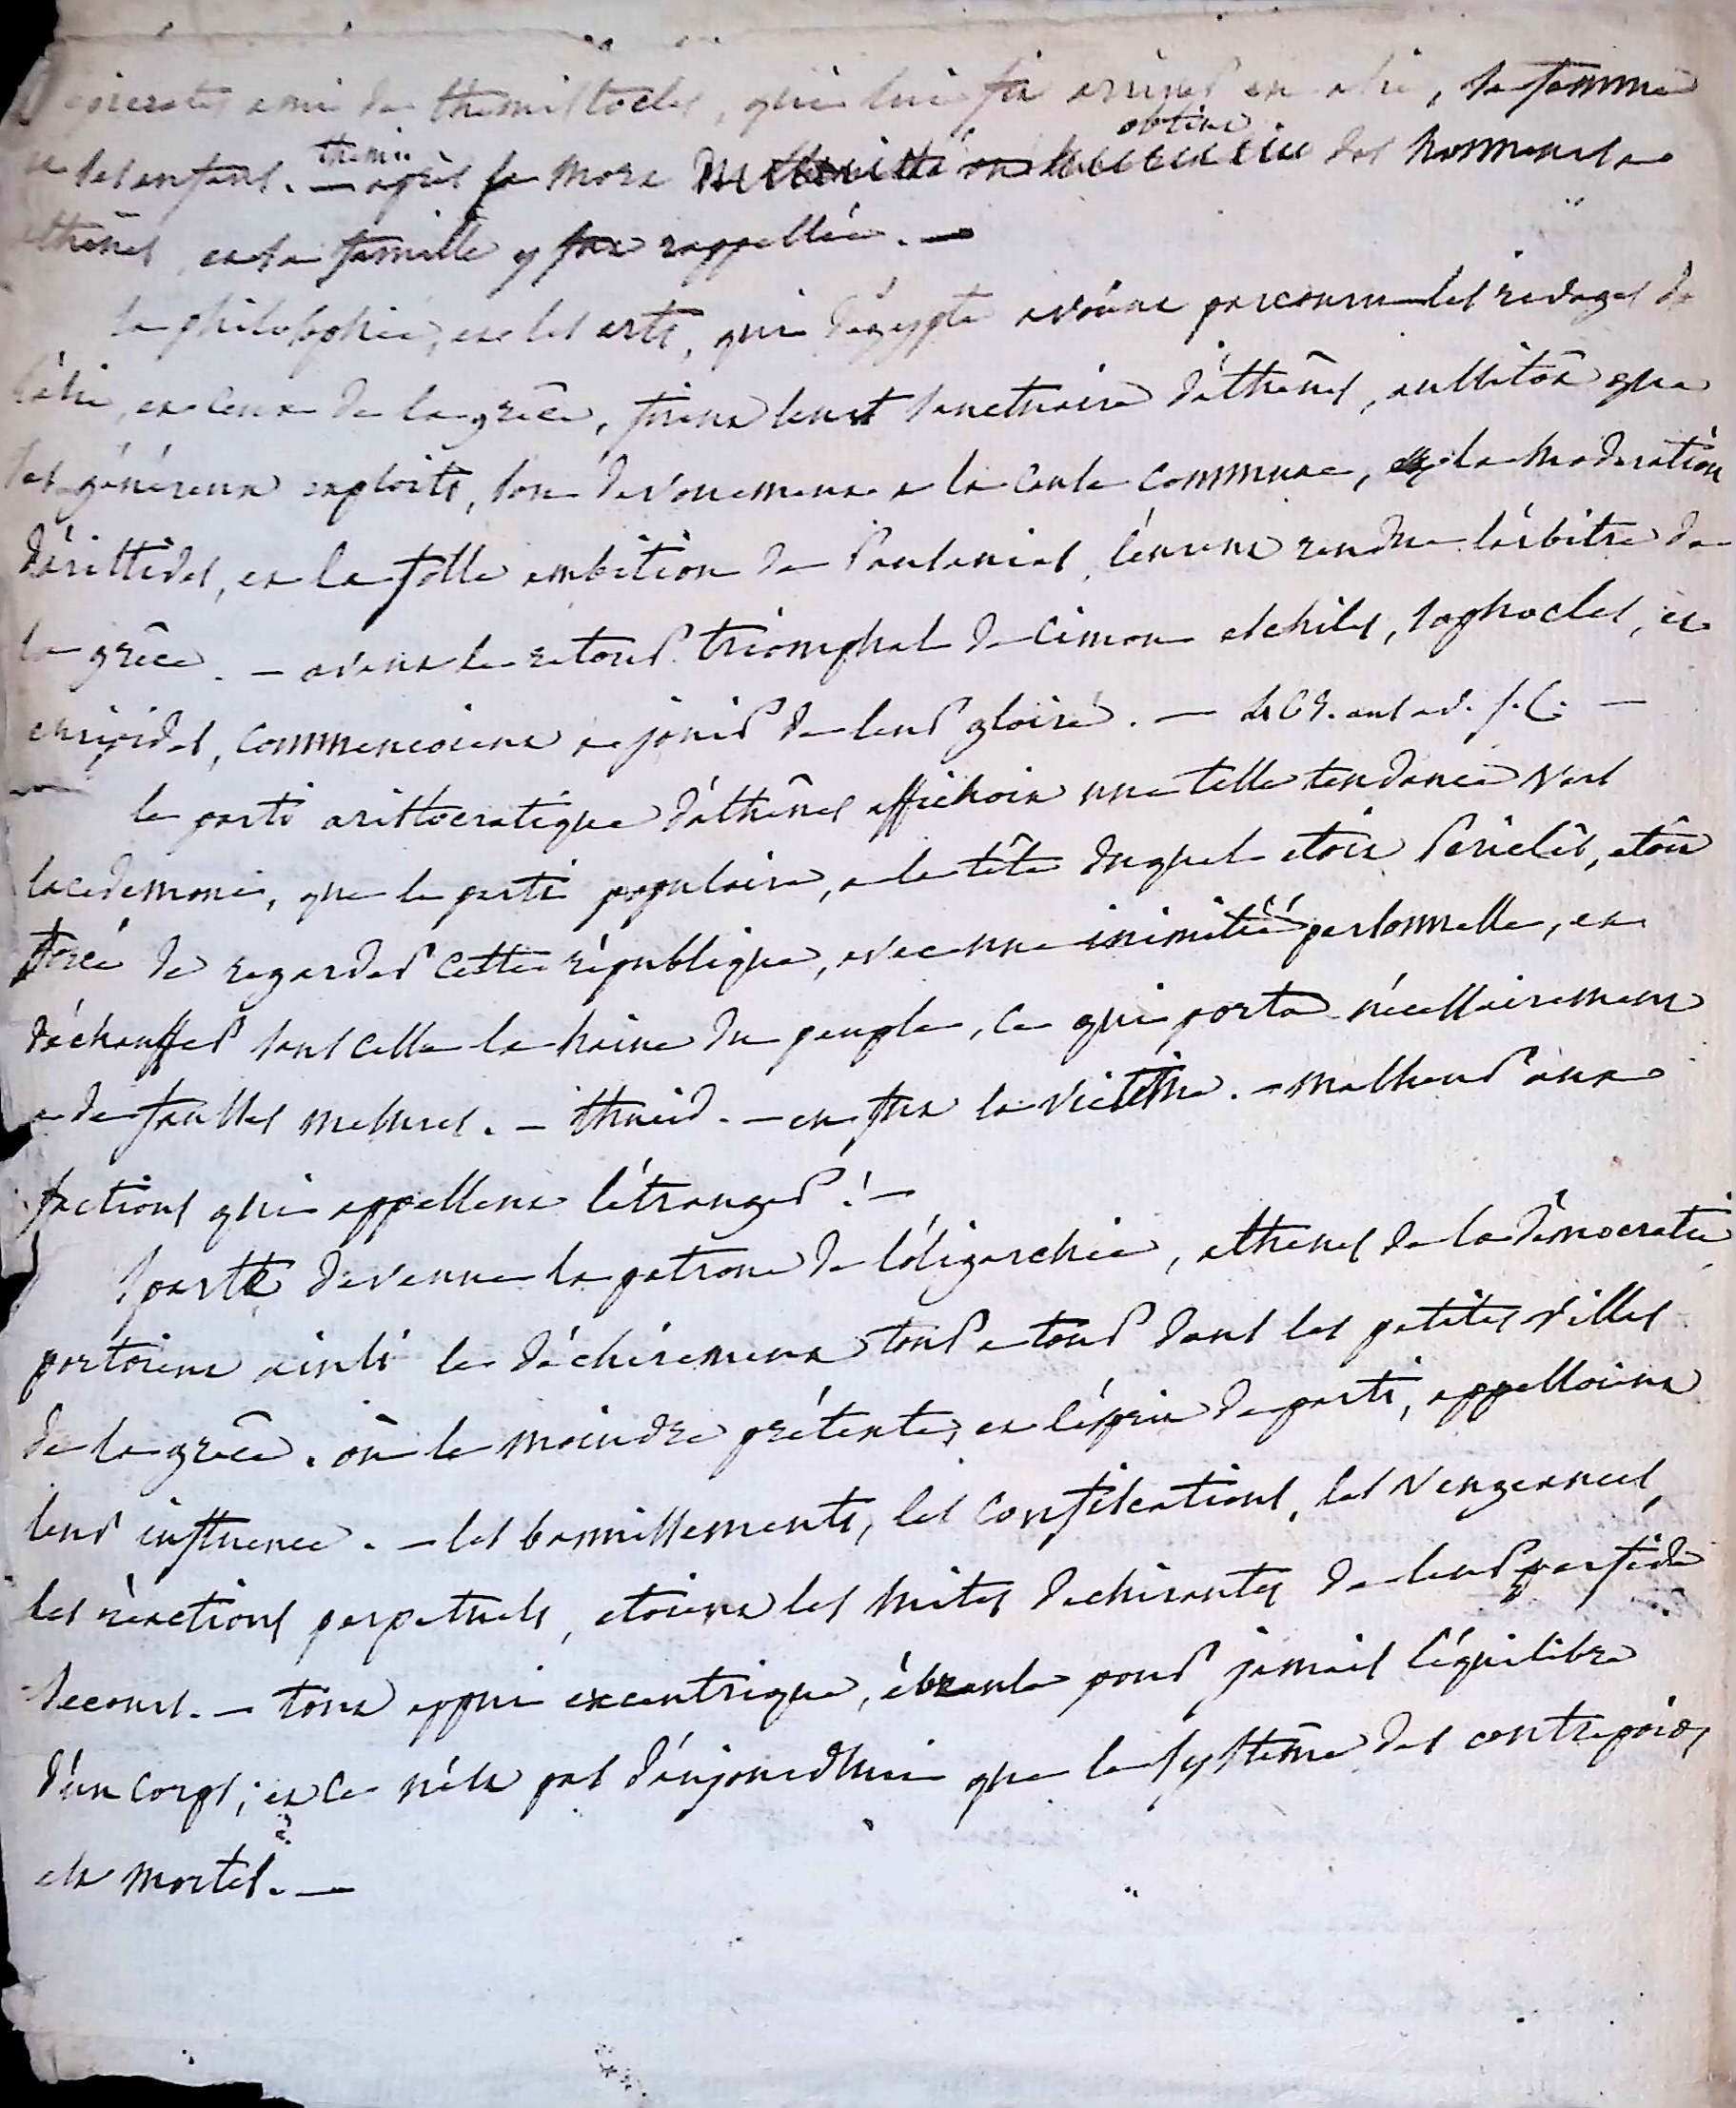 epicrates ami de themistocles, qui lui fit arriver en asie, sa femme
et ses enfans. — après sa mort themis. obtint des honneurs a
athênes, et sa famille y fut rappellée. —
la philosophie, et les arts, qui d'égypte avoient parcouru les rivages de
l'asie, et ceux de la grêce, firent leur sanctuaire d'athênes, aussitôt que
ses généreux exploits, son devouement a la cause commune, la modération
d'aristides, et la folle ambition de Pausanias, l'eurent rendue l'arbitre de
la grêce. — avant le retour triomphal de cimon eschiles, sophocles, et
euripides, commencoient a jouir de leur gloire. — ans av. J.C. —
le parti aristocratique d'athênes affichoit une telle tendance vers
lacedemone, que le parti populaire, a la tête duquel etoit Periclès, etoit
forcé de regarder cette république, avec une inimitié personnelle, et
d'échauffer sans cesse la haine du peuple, ce qui porta nécessairement
a de fausses mesures. — thucid. — en fut la victime. — malheur aux
factions qui appellent l'étranger! —
Sparte devenue la patrone de l'oligarchie, athenes de la démocratie
portoient ainsi le déchirement tour a tour dans les petites villes
de la grêce. où le moindre prétexte, et l'esprit de parti, appelloient
leur influence. — les bannissements, les confiscations, les vengeances,
les réactions perpetuels, etoient les suites dechirantes de leur perfide
secours. — tout appui excentrique, ébranle pour jamais l'équilibre
d'un corps; et ce n'est pas d'aujourdhui que le système des contrepoids
est mortel. —